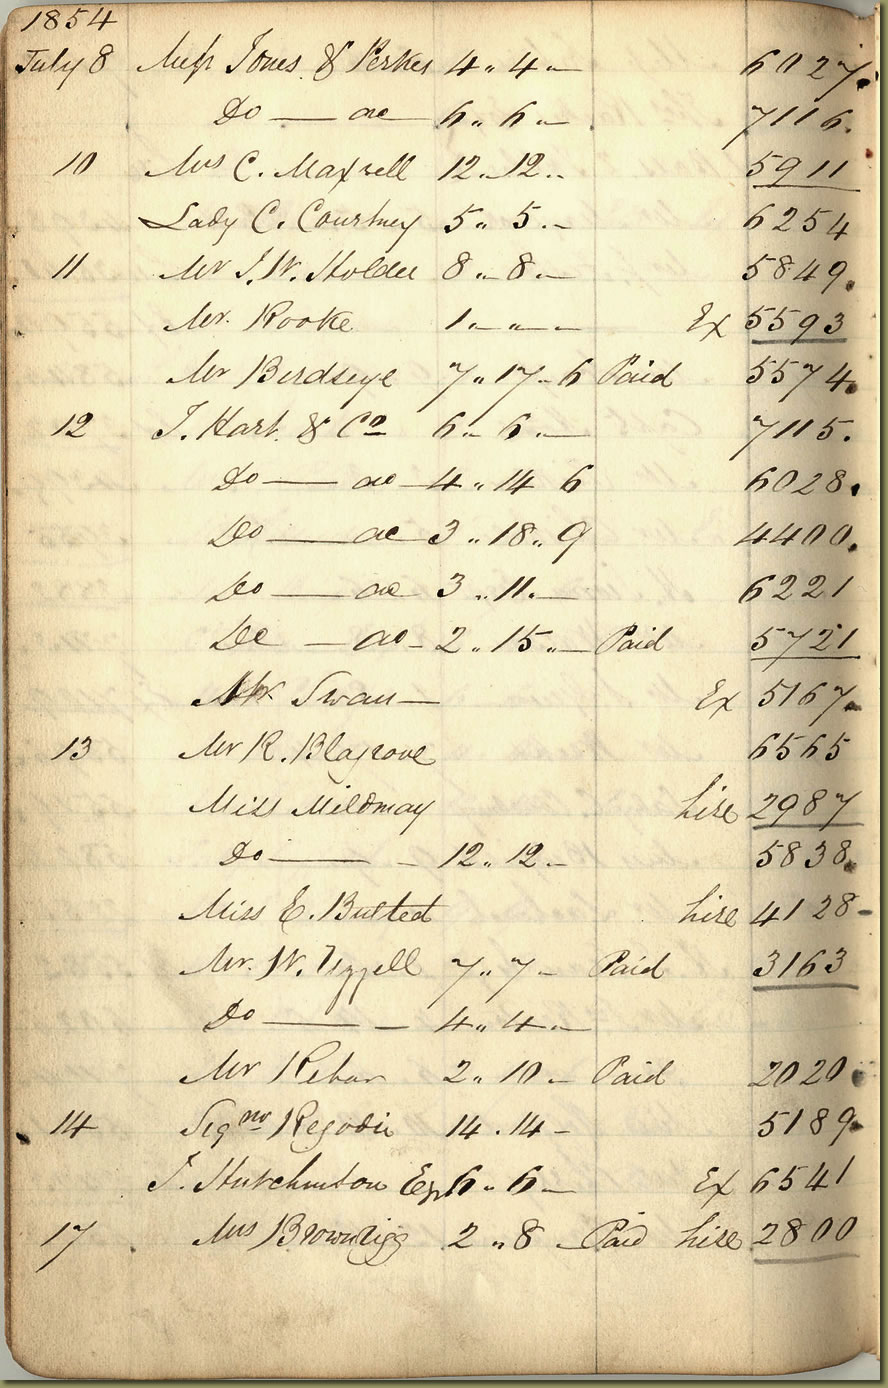 1854
July 8 Miss Jones & Perkes 4 " 4 " — 6027.
Do — do — 6 " 6 " — 7116.
10 Mrs C. Maxwell 12 " 12 " 5911
Lady C. Courtney 5 " 5 " — 6254
11 Mr J. W. Holder 8 " 8 " — 5849.
Mr. Rooke 1 " — " — Ex 5593
Mr Birdseye 7 " 17 " 6 Paid 5574.
12 J. Hart & Co 6 " 6 " — 7115.
Do — do — 4 " 14 6 6028.
Do — do — 3 " 18 " 9 4400.
Do — do 3 " 11 " — 6221
Do — do — 2 " 15 " — Paid 5721
Mr Swan — Ex 5167.
13 Mr R. Blagrove 6565
Miss Mildmay hire 2987
Do — — 12 " 12 " — 5838.
Miss E. Bulted hire 4128 -
Mr. W. Uzzell 7 " 7 — Paid 3163
Do — — 4 " 4 " —
Mr 2 " 10 — Paid 2020
14 Signor Regondi 14 . 14 — 5189.
J. Hutchinson Esq 6 " 6 " — Ex 6541
17 Mrs Brownrigg 2 " 8 — Paid hire 2800